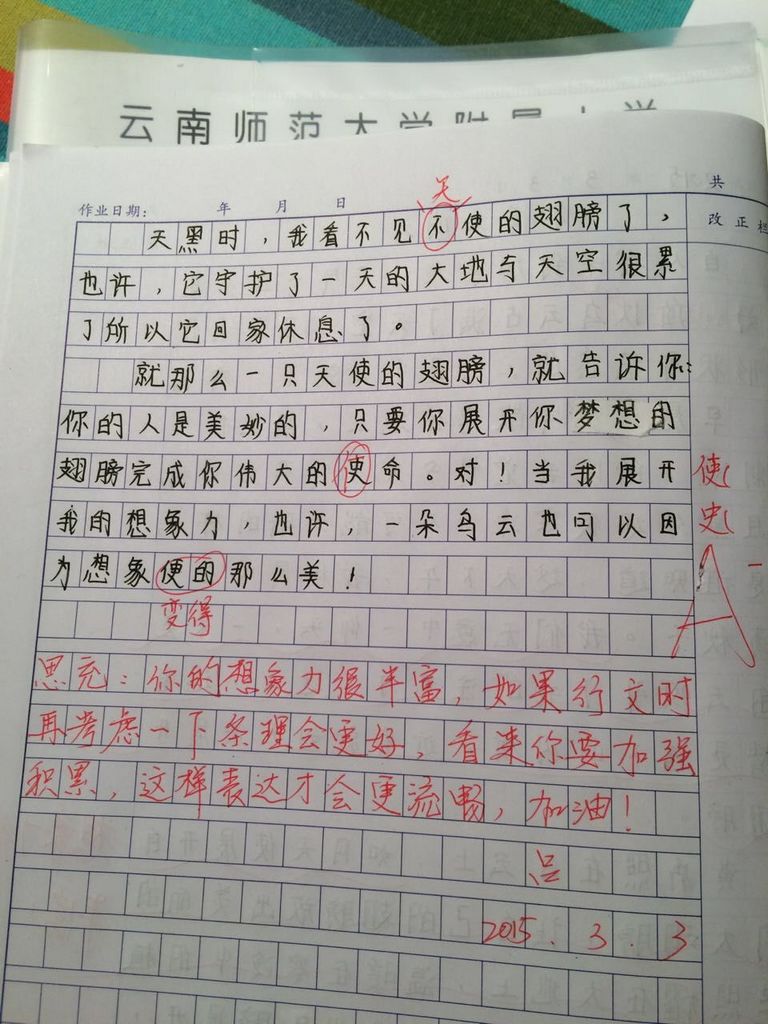 云南师范大学附属小学
共
作业日期： 年 月 日
天
改正栏
天黑时，我看不见不使的翅膀了，
也许，它守护了一天的大地与天空很累
了所以它回家休息了。
就那么一只天使的翅膀，就告诉你：
你的人是美妙的，只要你展开你梦想的
翅膀完成你伟大的使命。对！当我展开
使
我的想象力，也许，一朵乌云也可以因
史
为想象便的那么美！
A-
变得
思充：你的想象力很丰富，如果行文时
再考虑一下条理会更好，看来你要加强
积累，这样表达才会更流畅，加油！
吕
2015.3.3